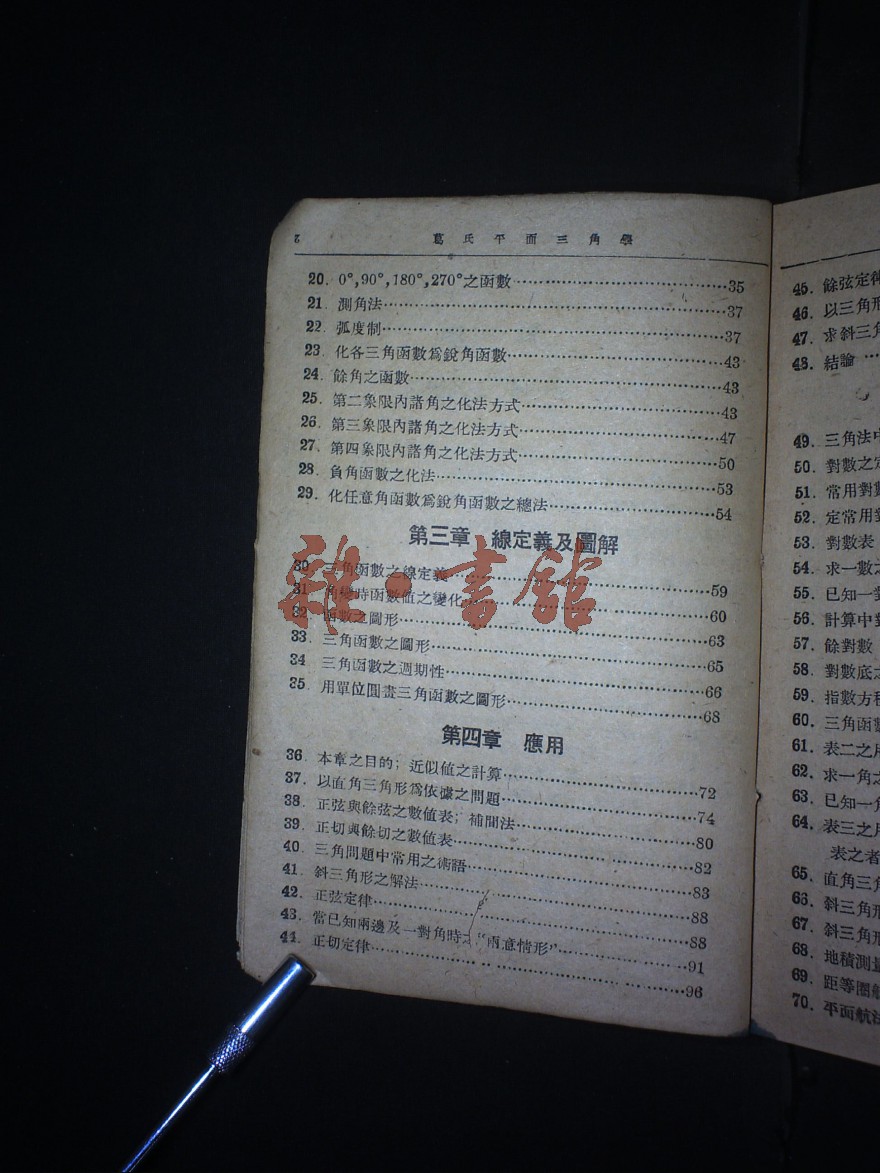 2 葛氏平面三角學
20. 0°,90°,180°,270°之函數……35
21. 測角法……37
22. 弧度制……37
23. 化各三角函數爲銳角函數……43
24. 餘角之函數……43
25. 第二象限內諸角之化法方式……43
26. 第三象限內諸角之化法方式……47
27. 第四象限內諸角之化法方式……50
28. 負角函數之化法……53
29. 化任意角函數爲銳角函數之總法……54
第三章 線定義及圖解
30. 三角函數之線定義……59
31. 角變時函數值之變化……60
32. 函數之圖形……63
33. 三角函數之圖形……65
34. 三角函數之週期性……66
35. 用單位圓畫三角函數之圖形……68
第四章 應用
36. 本章之目的；近似值之計算……72
37. 以直角三角形爲依據之問題……74
38. 正弦與餘弦之數值表；補間法……80
39. 正切與餘切之數值表……82
40. 三角問題中常用之術語……83
41. 斜三角形之解法……88
42. 正弦定律……88
43. 當已知兩邊及一對角時之“兩意情形”……91
44. 正切定律……96
雜·書館
45. 餘弦定律
46. 以三角形
47. 求斜三角
48. 結論……
49. 三角法中
50. 對數之定
51. 常用對數
52. 定常用對
53. 對數表
54. 求一數之
55. 已知一對
56. 計算中對
57. 餘對數
58. 對數底之
59. 指數方程
60. 三角函數
61. 表二之用
62. 求一角之
63. 已知一角
64. 表三之用
表之者
65. 直角三角
66. 斜三角形
67. 斜三角形
68. 地積測量
69. 距等圈航
70. 平面航法